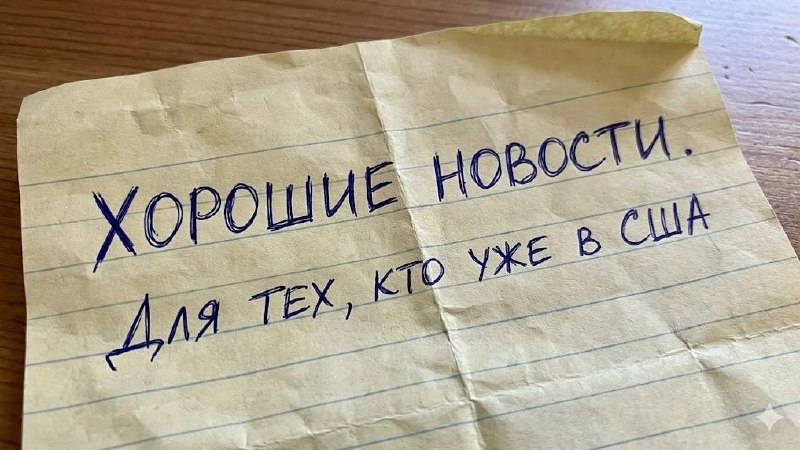 Хорошие новости.
Для тех, кто уже в США